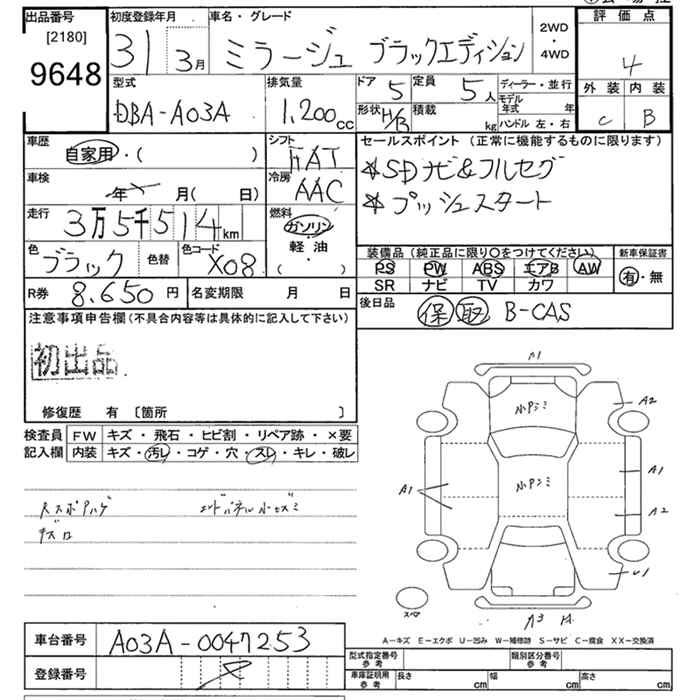 出品番号 [2180] 9648
初度登録年月 31 3月
車名・グレード ミラージュ ブラックエディション
2WD・4WD
評価点 4
外装 C 内装 B
型式 DBA-A03A
排気量 1,200cc
ドア 5 定員 5人
形状 H/B 積載 kg
ディーラー・並行
モデル年式 年
ハンドル 左・右
車歴 自家用・( )
シフト FAT
セールスポイント (正常に機能するものに限ります)
☆SDナビ&フルセグ
☆プッシュスタート
車検 年 月( 日)
冷房 AAC
走行 3万5千514km
燃料 ガソリン・軽油・( )
色 ブラック 色替 色コード X08
装備品 (純正品に限り○をつけてください) 新車保証書
PS PW ABS エアB AW 有・無
SR ナビ TV カワ
R券 8,650円 名変期限 月 日
後日品 保 取 B-CAS
注意事項申告欄(不具合内容等は具体的に記入して下さい)
初出品
修復歴 有 〔箇所 〕
検査員記入欄 FW キズ・飛石・ヒビ割・リペア跡・×要
内装 キズ・汚レ・コゲ・穴・スレ・キレ・破レ
エンドパネル小キズミ
A1
A2
小Pシミ
A1
小Pシミ
A1
A2
U1
スペア
A3
A-キズ E-エクボ U-凹み W-補修跡 S-サビ C-腐食 XX-交換済
車台番号 A03A-0047253
登録番号
型式指定番号 参考 類別区分番号 参考
車庫証明用 参考 長さ cm 幅 cm 高さ cm